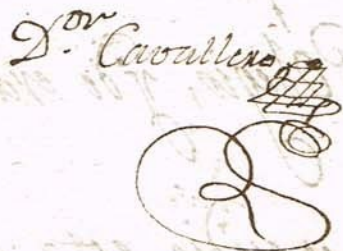 D.or Cavallero